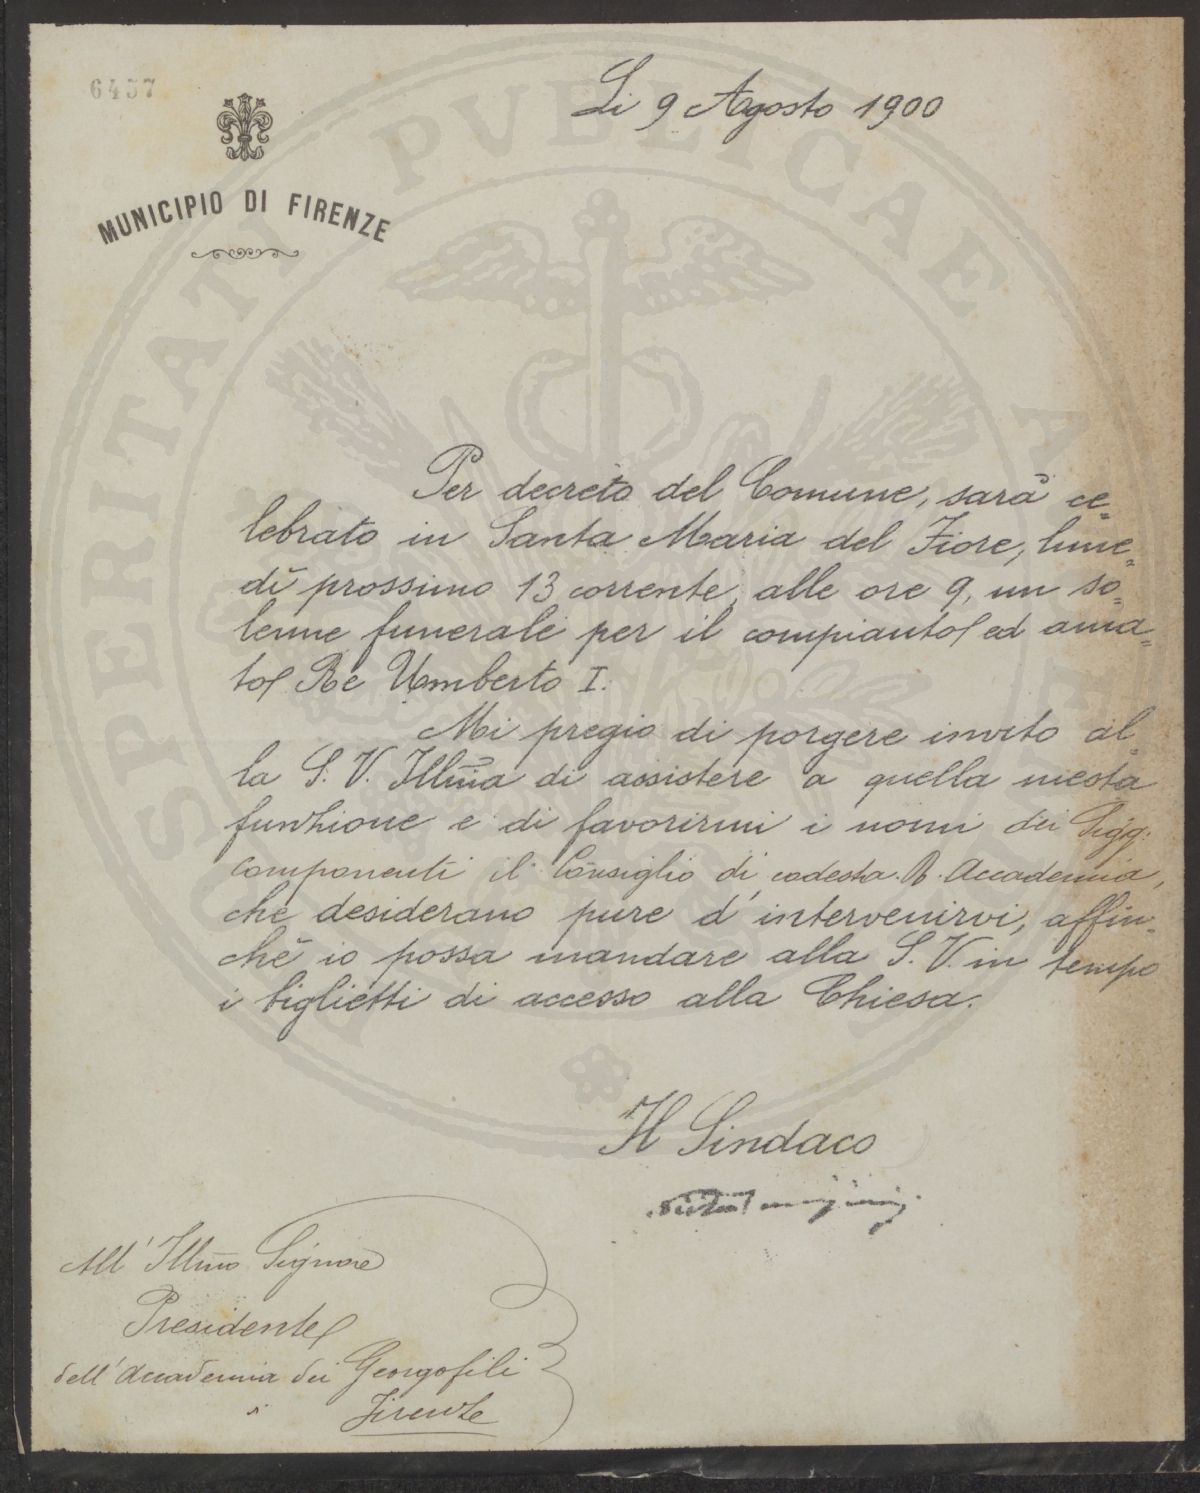 6457
Li 9 Agosto 1900
MUNICIPIO DI FIRENZE
Per decreto del Comune, sarà ce=
lebrato in Santa Maria del Fiore, lune=
dì prossimo 13 corrente, alle ore 9, un so=
lenne funerale per il compianto ed ama=
to Re Umberto I.
Mi pregio di porgere invito al=
la S. V. Illma di assistere a quella mesta
funzione e di favorirmi i nomi dei Sigg:
componenti il Consiglio di codesta R. Accademia,
che desiderano pure d'intervenirvi, affin=
chè io possa mandare alla S. V. in tempo
i biglietti di accesso alla Chiesa.
Il Sindaco
All' Illmo Signore
Presidente
dell'Accademia dei Georgofili
Firenze
PROSPERITATI PUBLICAE AUGENDAE